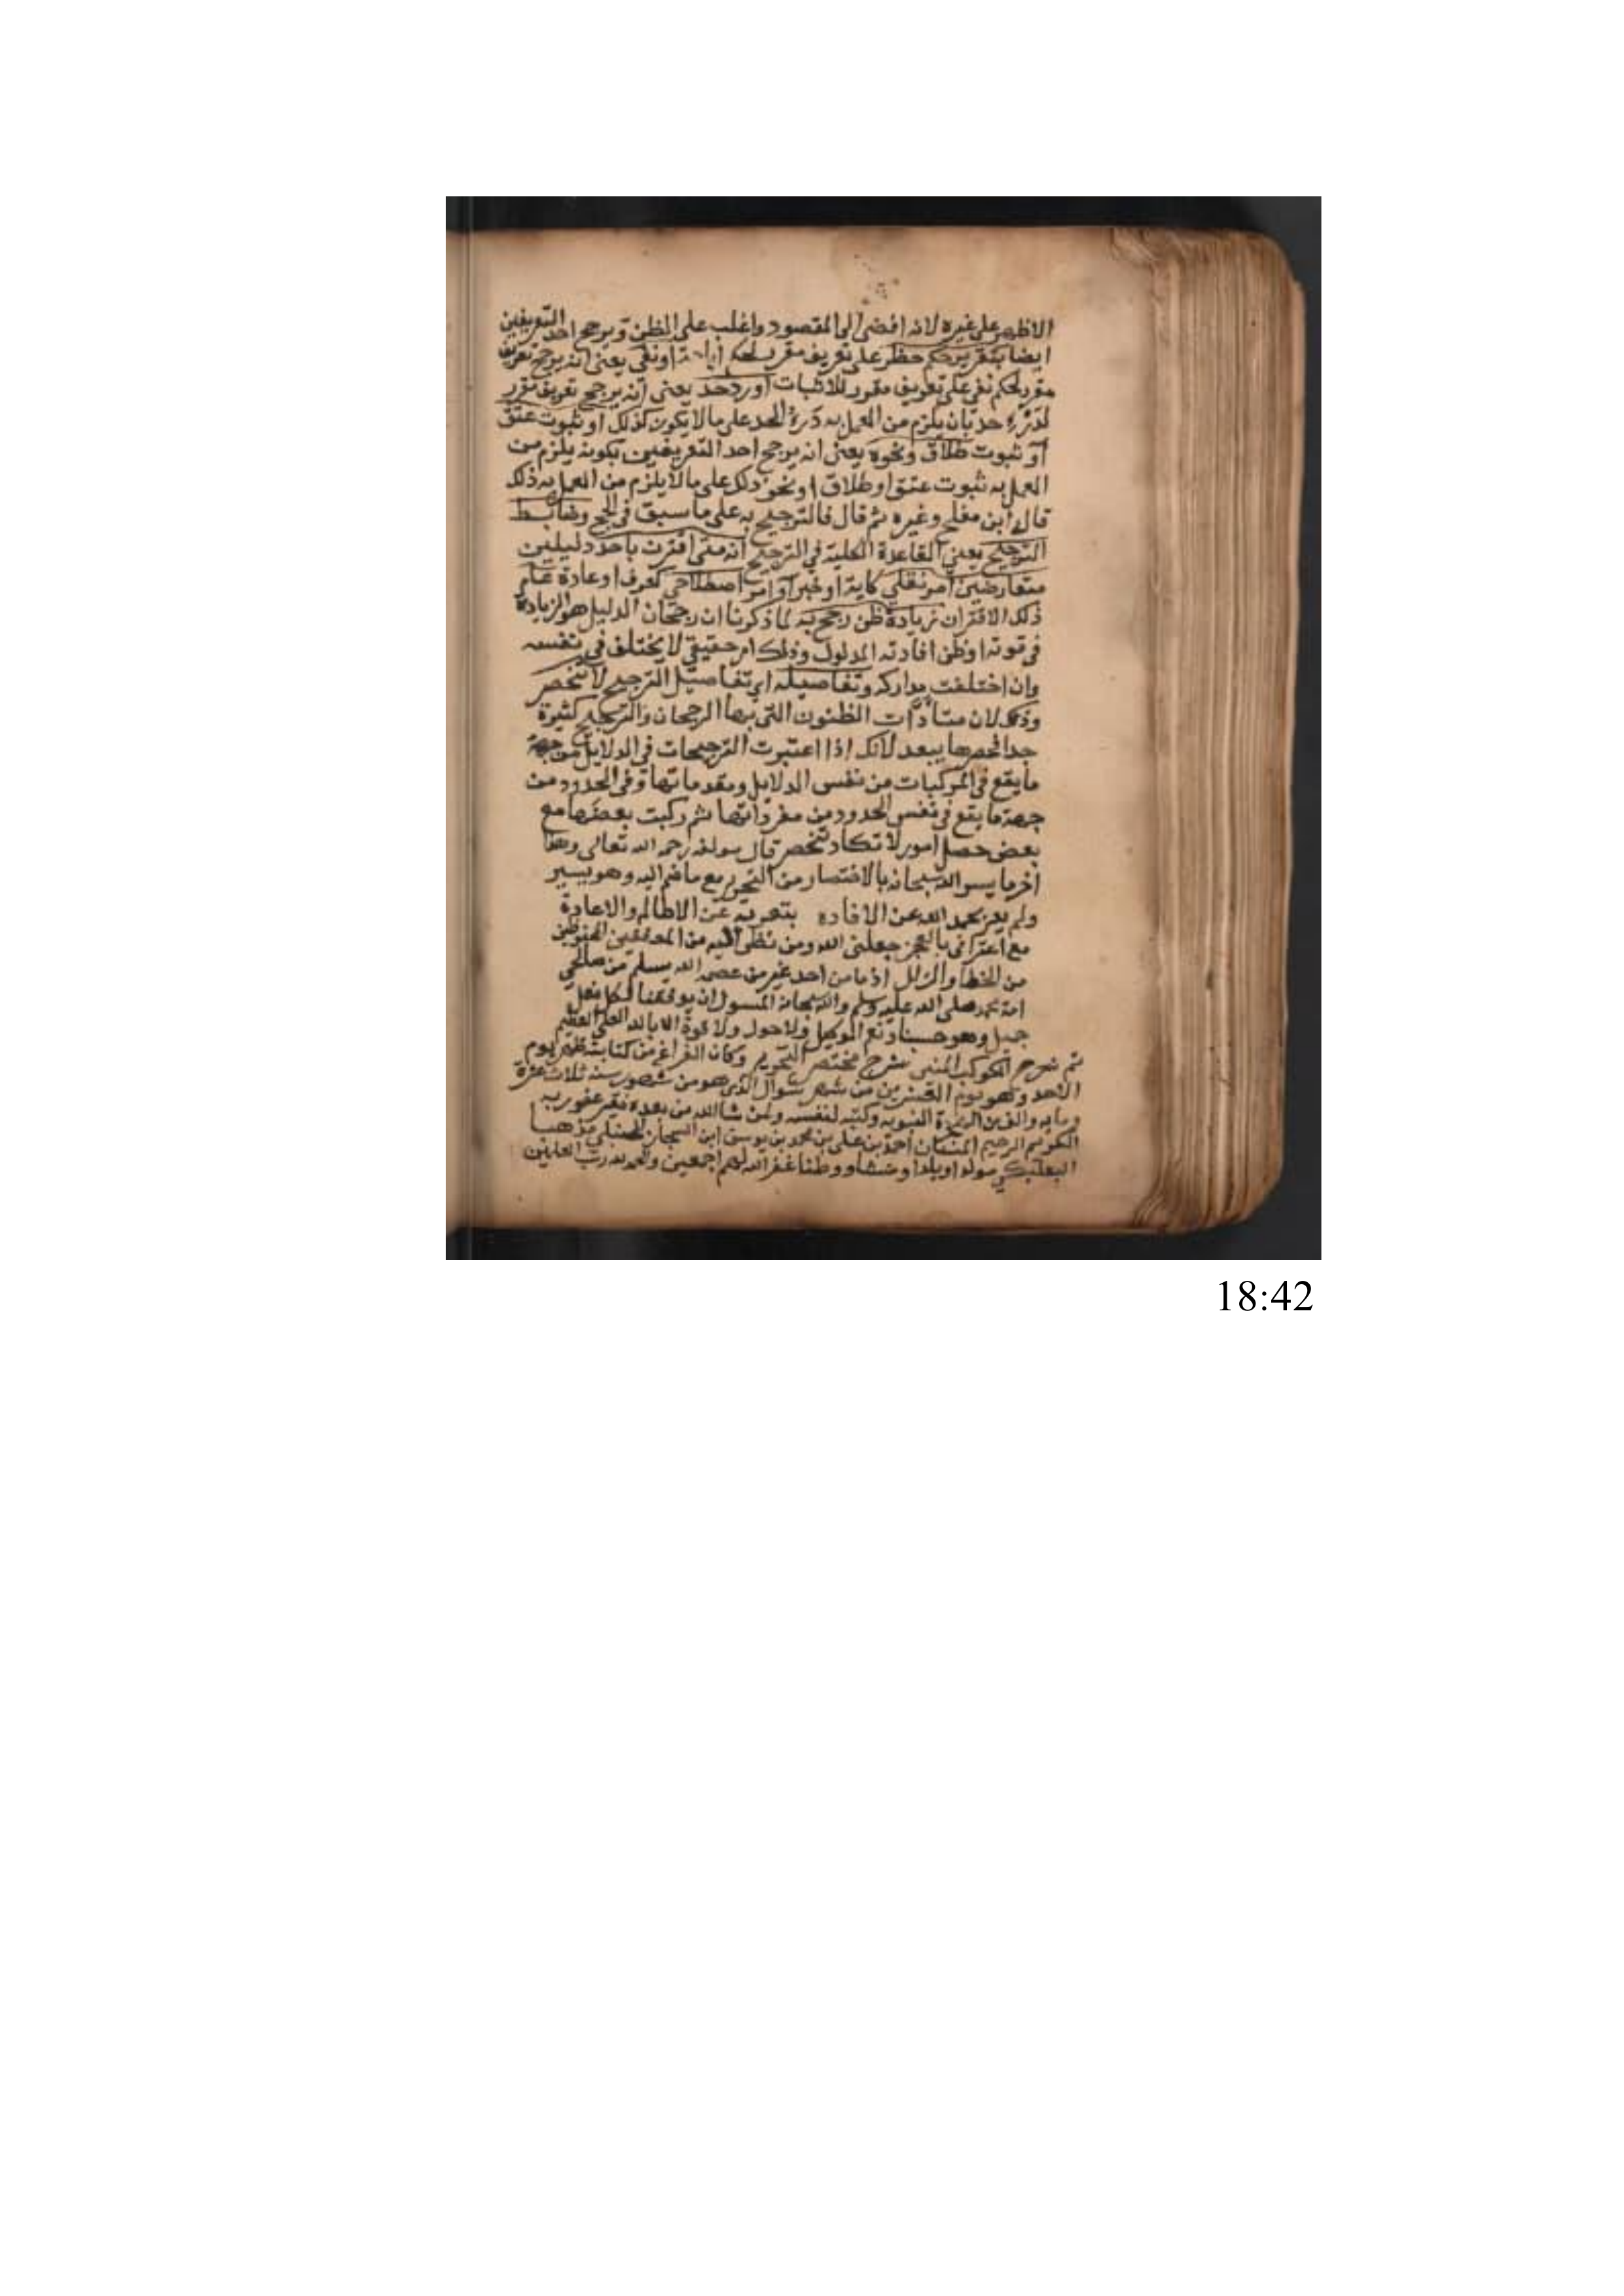 الاظهر على غيره لانه افضى الى المقصود واغلب على الظن ويرجح احد التعريفين
ايضا بتقرير حكم حظر على تعريف مقرر لحكم اباحة او نفي يعني انه يرجح تعريف
مقرر لحكم نفي على تعريف مقرر للاثبات او درء حد يعني انه يرجح تعريف مقرر
لدرء حد بان يلزم من العمل به درء الحد على ما لا يكون كذلك او ثبوت عتق
او ثبوت طلاق ونحوه يعني انه يرجح احد التعريفين بكونه يلزم من
العمل به ثبوت عتق او طلاق او نحو ذلك على ما لا يلزم من العمل به ذلك
قاله ابن مفلح وغيره ثم قال فالترجيح به على ما سبق في الحجج وضابط
الترجيح يعني القاعدة الكلية في الترجيح انه متى اقترن باحد دليلين
متعارضين امر نقلي كاية او خبر او امر اصطلاحي كعرف او عادة عام
ذلك الاقتران زيادة ظن رجح به لما ذكرنا ان رجحان الدليل هو الزيادة
في قوته او ظن افادته المدلول وذلك امر حقيقي لا يختلف في نفسه
وان اختلفت مداركه وتفاصيله اي تفاصيل الترجيح لا تنحصر
وذلك لان مثارات الظنون التي بها الرجحان والترجيح كثيرة
جدا فحصرها يبعد لانك اذا اعتبرت الترجيحات في الدلايل من جهة
ما يقع في المركبات من نفس الدلايل ومقدماتها وفي الحدود من
جهة ما يقع في نفس الحدود من مفرداتها ثم ركبت بعضها مع
بعض حصل امور لا تكاد تنحصر قال مولفه رحمه الله تعالى وهذا
اخر ما يسر الله سبحانه بالاختصار من التحرير مع ما ضم اليه وهو يسير
ولم يعر بحمد الله عن الافاده بتعريه عن الاطالة والاعادة
مع اعترافي بالعجز جعلني الله ومن نظر اليه من المحفوظين
من الخطا والزلل اذ ما من احد غير من عصمه الله يسلم من صالحي
امة محمد صلى الله عليه وسلم والله سبحانه المسول ان يوفقنا لكل فعل
جميل وهو حسبنا ونعم الوكيل ولا حول ولا قوة الا بالله العلي العظيم
تم شرح الكوكب المنير شرح مختصر التحرير وكان الفراغ من كتابته ظهر يوم
الاحد وهو يوم العشرين من شهر شوال الذي هو من شهور سنة ثلاث عشرة
ومايه والف من الهجرة النبويه وكتبه لنفسه ولمن شا الله من بعده فقير عفو ربه
الكريم الرحيم المنان احمد بن علي بن محمد بن يوسف ابن الحنبلي مذهبا
البعلبكي مولدا وبلدا ومنشاو وطنا غفر الله لهم اجمعين والحمد لله رب العالمين
18:42